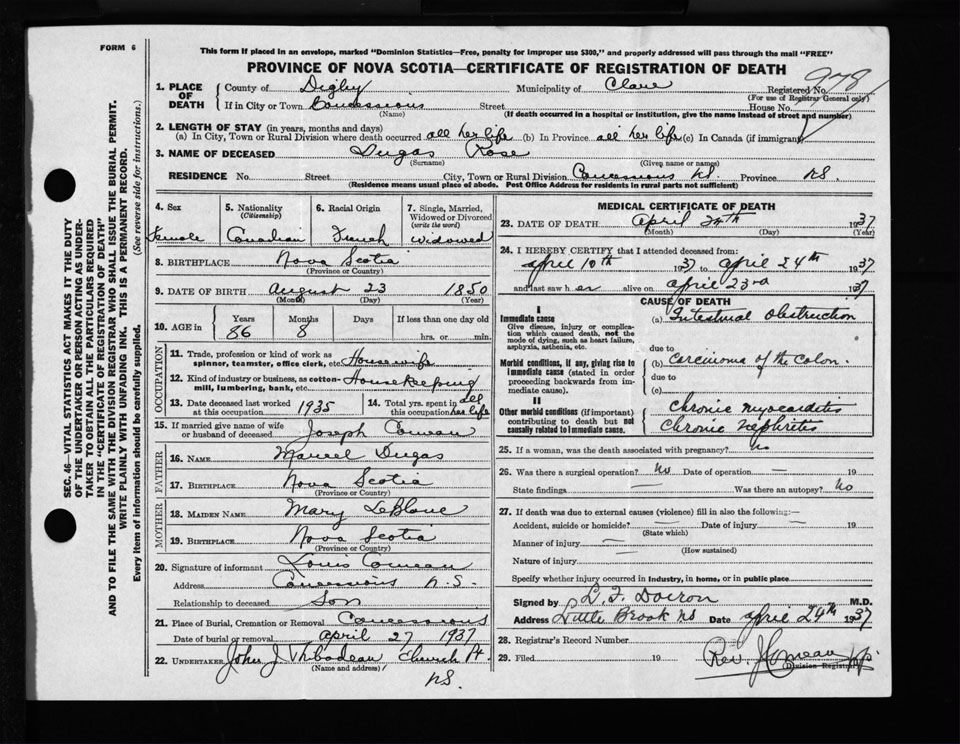 FORM 6
This form if placed in an envelope, marked "Dominion Statistics—Free, penalty for improper use $300," and properly addressed will pass through the mail "FREE"
PROVINCE OF NOVA SCOTIA—CERTIFICATE OF REGISTRATION OF DEATH
978
1. PLACE OF DEATH
County of Digby Municipality of Clare Registered No.
(For use of Registrar General only)
If in City or Town Concessions Street House No.
(Name) (If death occurred in a hospital or institution, give the name instead of street and number)
2. LENGTH OF STAY (in years, months and days)
(a) In City, Town or Rural Division where death occurred all her life (b) In Province all her life (c) In Canada (if immigrant)
3. NAME OF DECEASED Dugas Rose
(Surname) (Given name or names)
RESIDENCE No. Street City, Town or Rural Division Concessions NS. Province NS.
(Residence means usual place of abode. Post Office Address for residents in rural parts not sufficient)
4. Sex 5. Nationality (Citizenship) 6. Racial Origin 7. Single, Married, Widowed or Divorced (write the word)
Female Canadian French Widowed
8. BIRTHPLACE Nova Scotia
(Province or Country)
9. DATE OF BIRTH August 23 1850
(Month) (Day) (Year)
10. AGE in Years Months Days If less than one day old
86 8 hrs. or min.
OCCUPATION
11. Trade, profession or kind of work as spinner, teamster, office clerk, etc. Housewife
12. Kind of industry or business, as cotton-mill, lumbering, bank, etc. Housekeeping
13. Date deceased last worked at this occupation 1935 14. Total yrs. spent in this occupation all her life
15. If married give name of wife or husband of deceased Joseph Comeau
FATHER
16. NAME Marcel Dugas
17. BIRTHPLACE Nova Scotia
(Province or Country)
MOTHER
18. MAIDEN NAME Mary LeBlanc
19. BIRTHPLACE Nova Scotia
(Province or Country)
20. Signature of informant Louis Comeau
Address Concessions N.S.
Relationship to deceased Son
21. Place of Burial, Cremation or Removal Concessions
Date of burial or removal april 27 1937
22. UNDERTAKER John J Thibodeau Church Pt
(Name and address)
NS.
MEDICAL CERTIFICATE OF DEATH
23. DATE OF DEATH April 24th 1937
(Month) (Day) (Year)
24. I HEREBY CERTIFY that I attended deceased from:
april 10th 1937 to april 24th 1937
and last saw her alive on april 23rd 1937
CAUSE OF DEATH
I
Immediate cause (a) Intestinal Obstruction
Give disease, injury or complication which caused death, not the mode of dying, such as heart failure, asphyxia, asthenia, etc.
due to
Morbid conditions, if any, giving rise to immediate cause (stated in order proceeding backwards from immediate cause).
(b) Carcinoma of the Colon.
due to
(c)
II
Other morbid conditions (if important) contributing to death but not causally related to immediate cause.
Chronic myocarditis
Chronic Nephritis
25. If a woman, was the death associated with pregnancy? No
26. Was there a surgical operation? No Date of operation — 19
State findings — Was there an autopsy? No
27. If death was due to external causes (violence) fill in also the following:—
Accident, suicide or homicide? — Date of injury — 19
(State which)
Manner of injury —
(How sustained)
Nature of injury —
Specify whether injury occurred in industry, in home, or in public place
Signed by L. F. Doiron M.D.
Address Little Brook NS Date april 24th 1937
28. Registrar's Record Number
29. Filed 19 Rev. J Comeau pp.
Division Registrar
SEC. 46—VITAL STATISTICS ACT MAKES IT THE DUTY
OF THE UNDERTAKER OR PERSON ACTING AS UNDER-
TAKER TO OBTAIN ALL THE PARTICULARS REQUIRED
IN THE "CERTIFICATE OF REGISTRATION OF DEATH"
AND TO FILE THE SAME WITH THE DIVISION REGISTRAR WHO SHALL ISSUE THE BURIAL PERMIT.
WRITE PLAINLY WITH UNFADING INK. THIS IS A PERMANENT RECORD.
Every item of information should be carefully supplied. (See reverse side for instructions.)